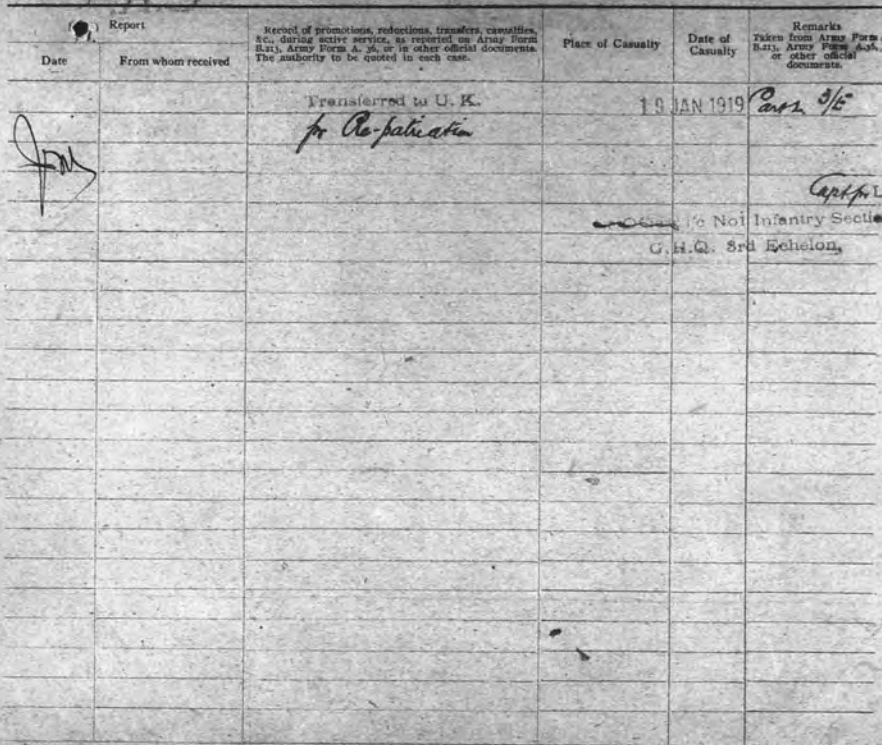 Report
Date
From whom received
Record of promotions, reductions, transfers, casualties,
&c., during active service, as reported on Army Form
B.213, Army Form A. 36, or in other official documents.
The authority to be quoted in each case.
Place of Casualty
Date of
Casualty
Remarks
Taken from Army Form
B.213, Army Form A.36,
or other official
documents.
Transferred to U. K.
19 JAN 1919
for Re-patriation
Capt for L
i/c Not Infantry Sectio
G.H.Q. 3rd Echelon,